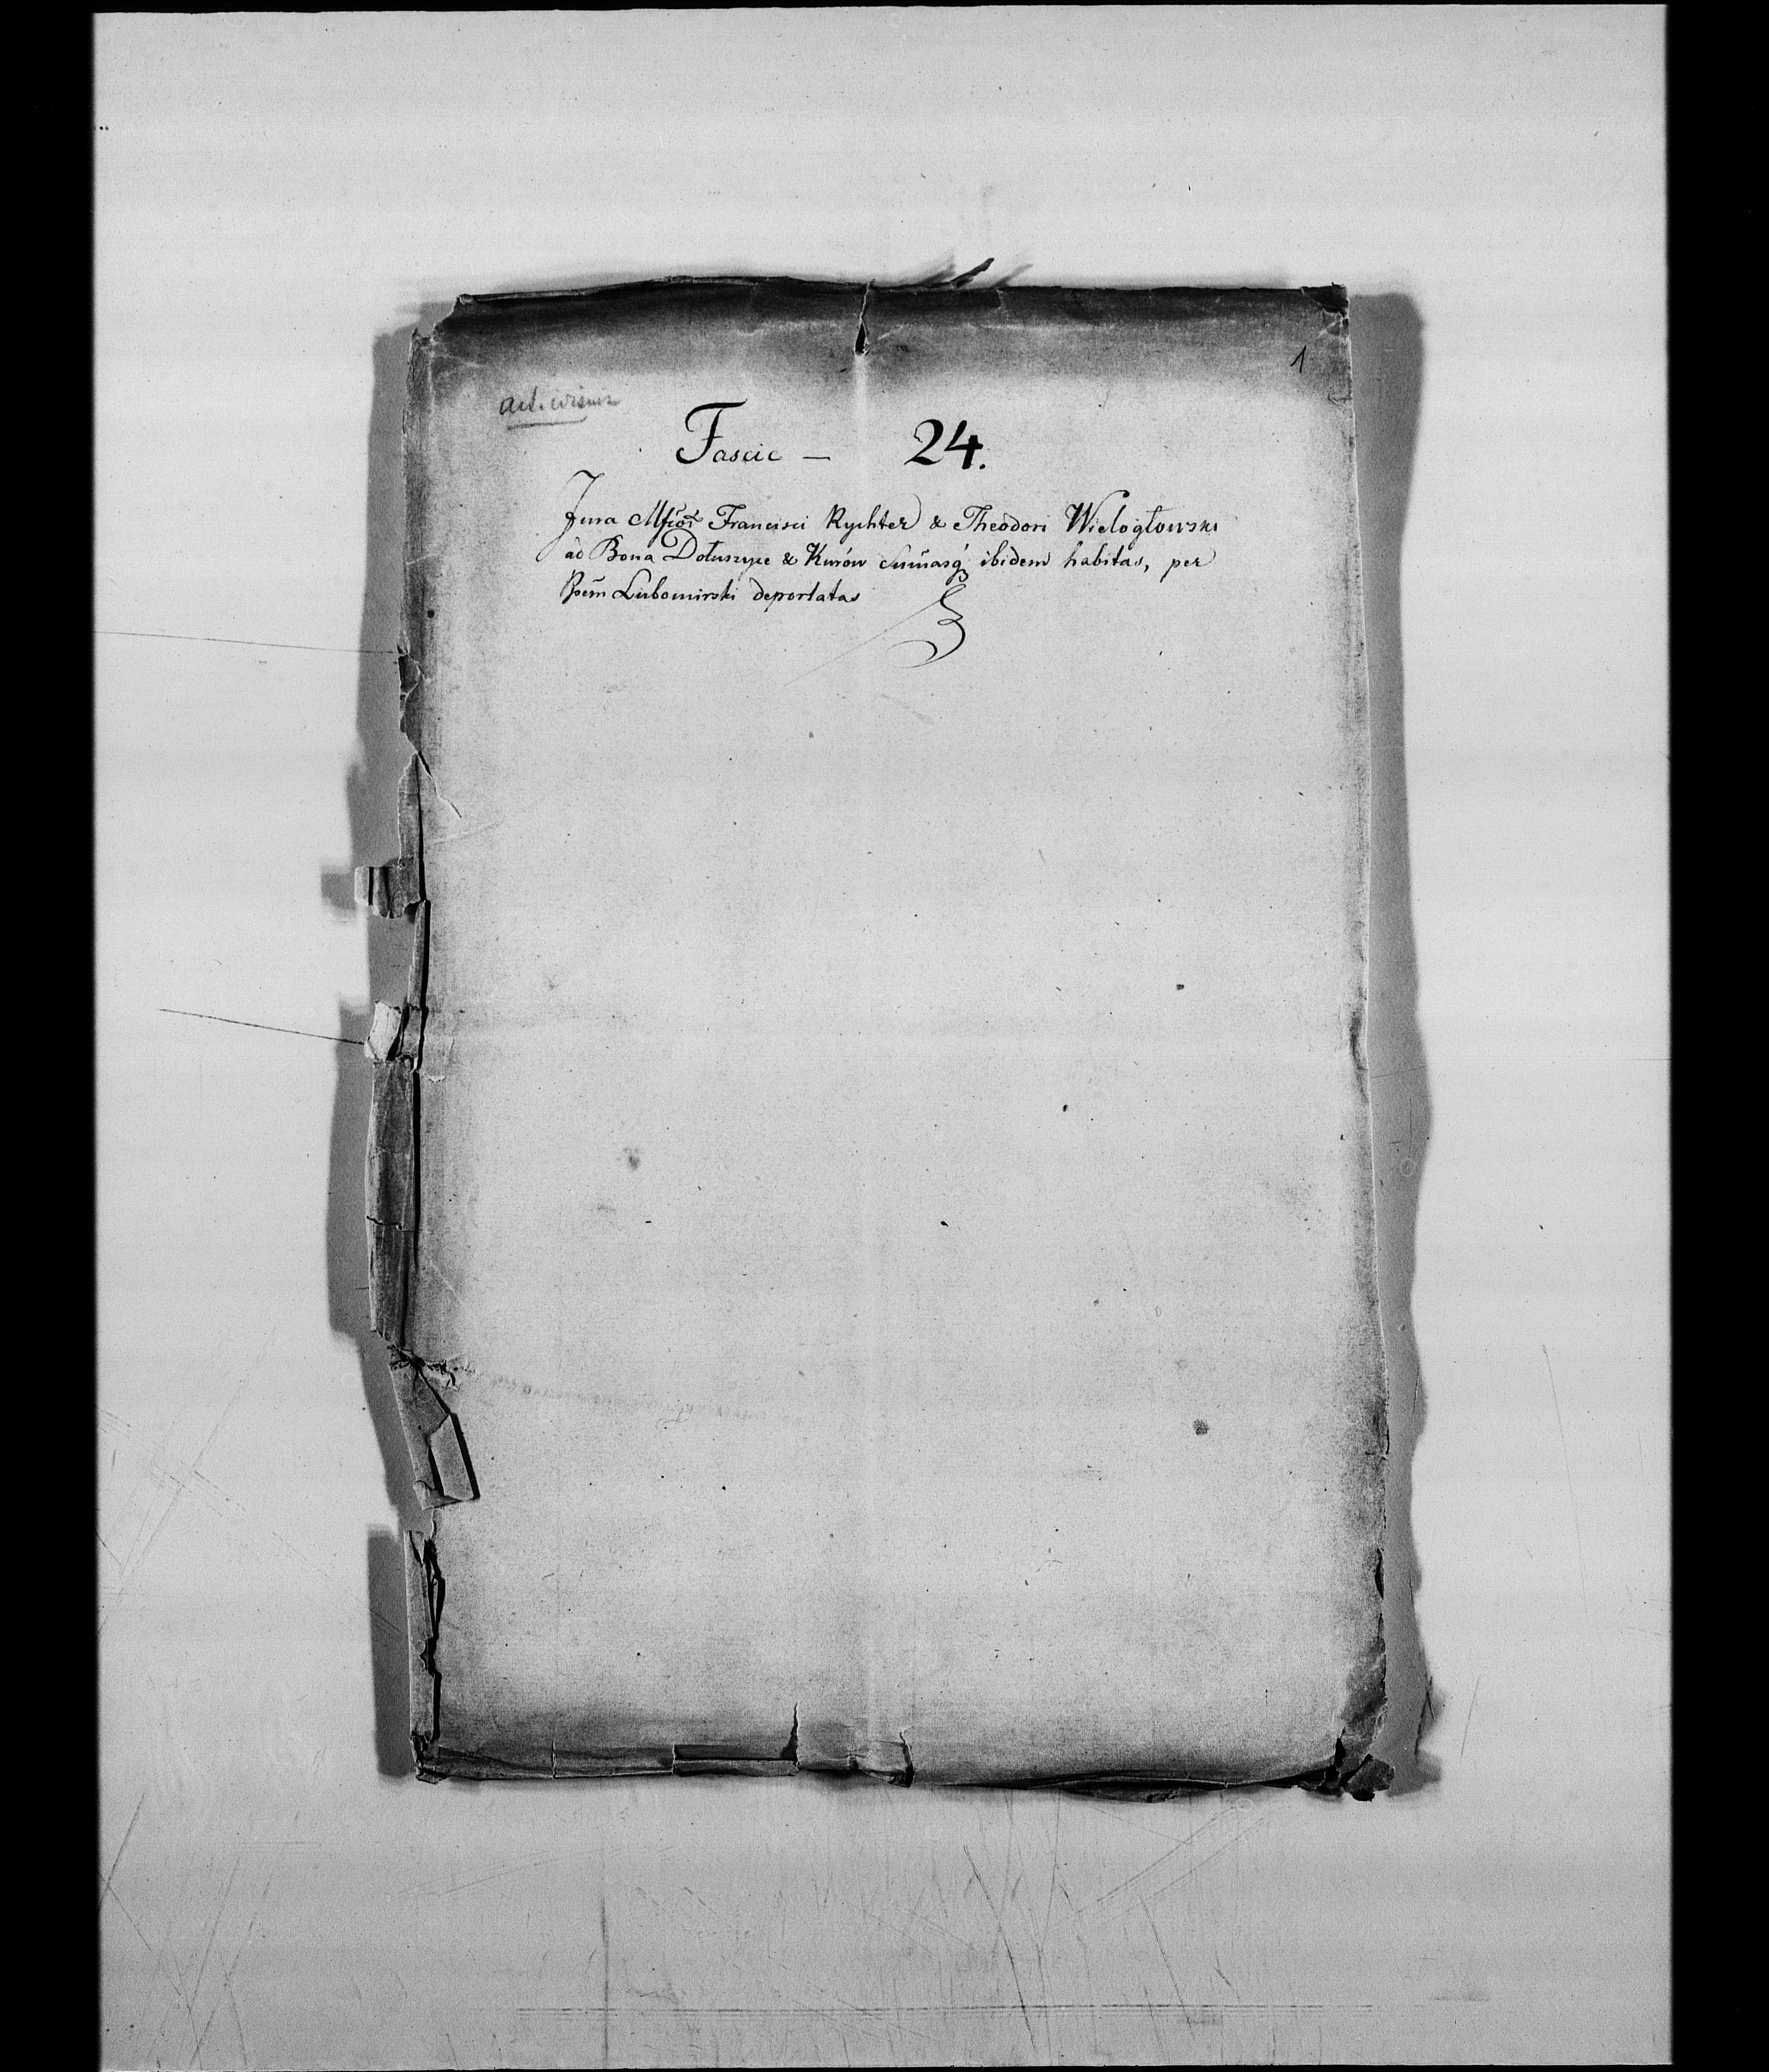 1
Fascic — 24.
Jura Francisci Rychter & Theodori Wielogłowski
ad Bona Dołuszyce & Kurów ibidem habitas, per
Lubomirski deportatas